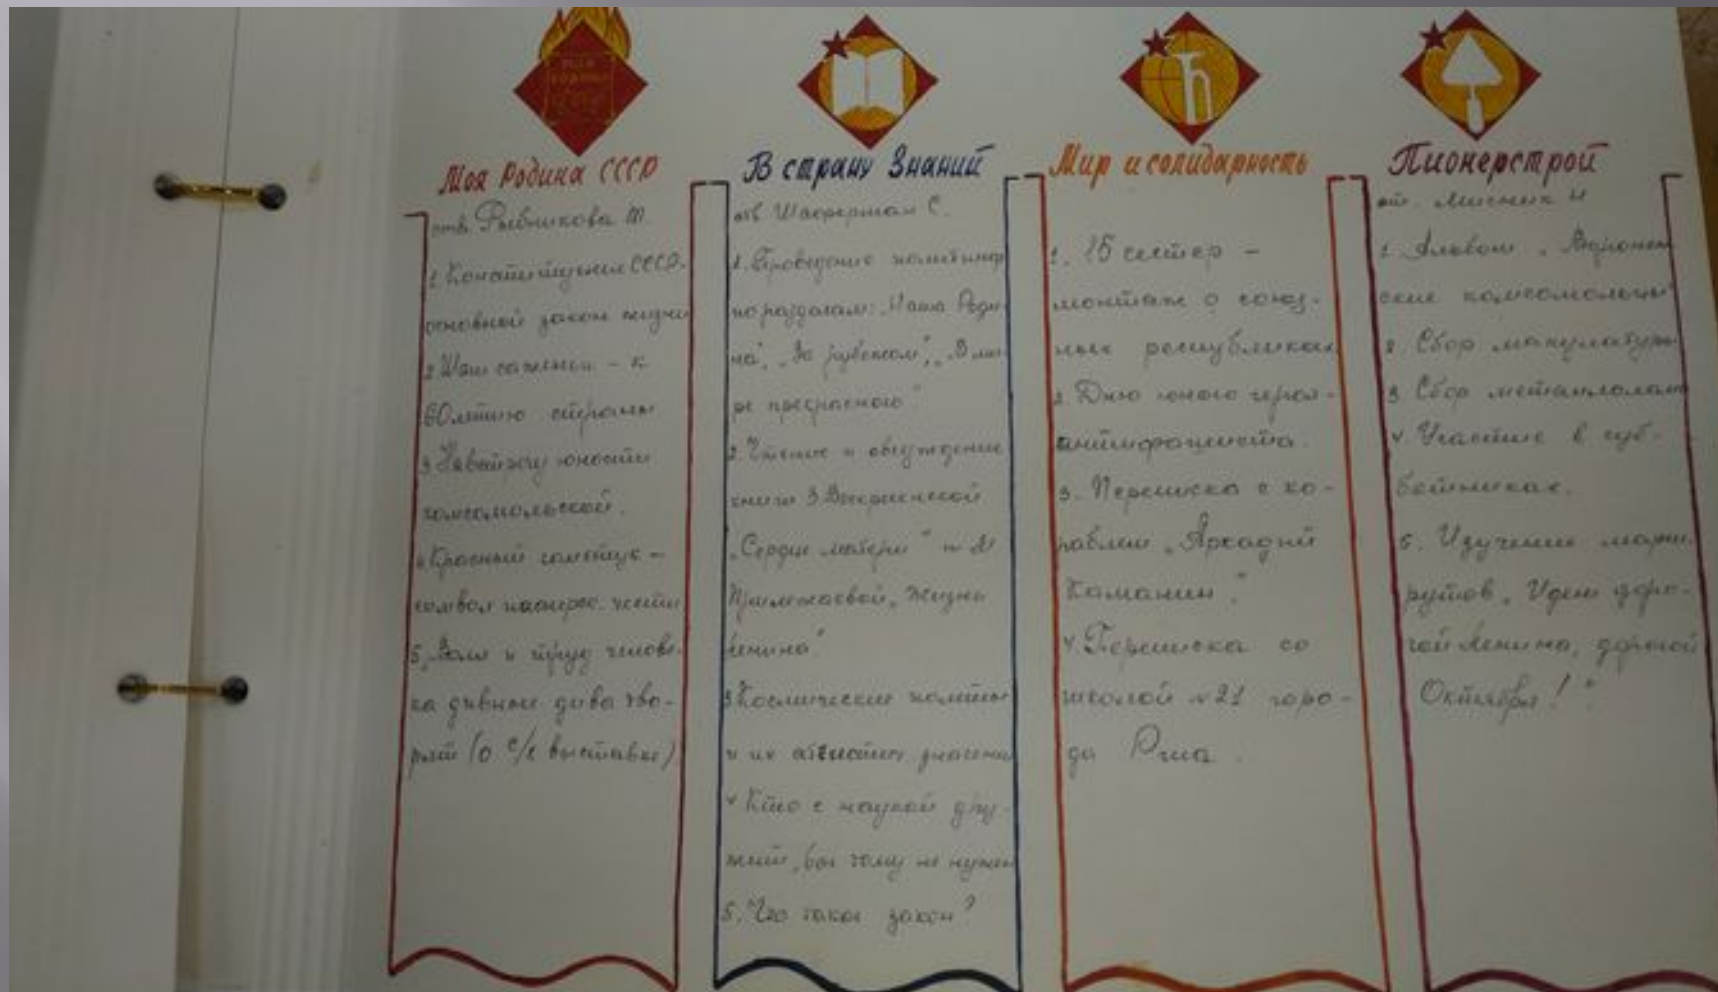 Моя Родина СССР
отв. Рыбникова Т.
1. Конституция СССР -
основной закон жизни
2. Наш - к
60летию страны
3. юности
комсомольской.
4. Красный галстук -
символ пионерс. чести
5. Воля и труд челове-
ка дивные дива тво-
рят (о с/х выставке)
В страну Знаний
отв. С.
1. Проведение политинф
по разделам: "Наша Роди-
на", "За рубежом", "В ми-
ре прекрасного"
2. Чтение и обсуждение
книги З. Воскресенской
"Сердце матери" и М
Прилежаевой "Жизнь
Ленина".
3. Космические полёты
и их значение
4. Кто с наукой дру-
жит,
5. Что такое закон?
Мир и солидарность
1. 15 сестёр -
монтаж о союз-
ных республиках
2. Дню юного героя-
антифашиста.
3. Переписка с ко-
раблем "Аркадий
Каманин".
4. Переписка со
школой №21 горо-
да
Пионерстрой
отв. Н
1. Альбом "Воронеж
ские комсомольцы"
2. Сбор макулатуры
3. Сбор металлолома
4. Участие в суб-
ботниках.
5. Изучение марш-
рутов "Идем доро-
гой Ленина, дорогой
Октября!"